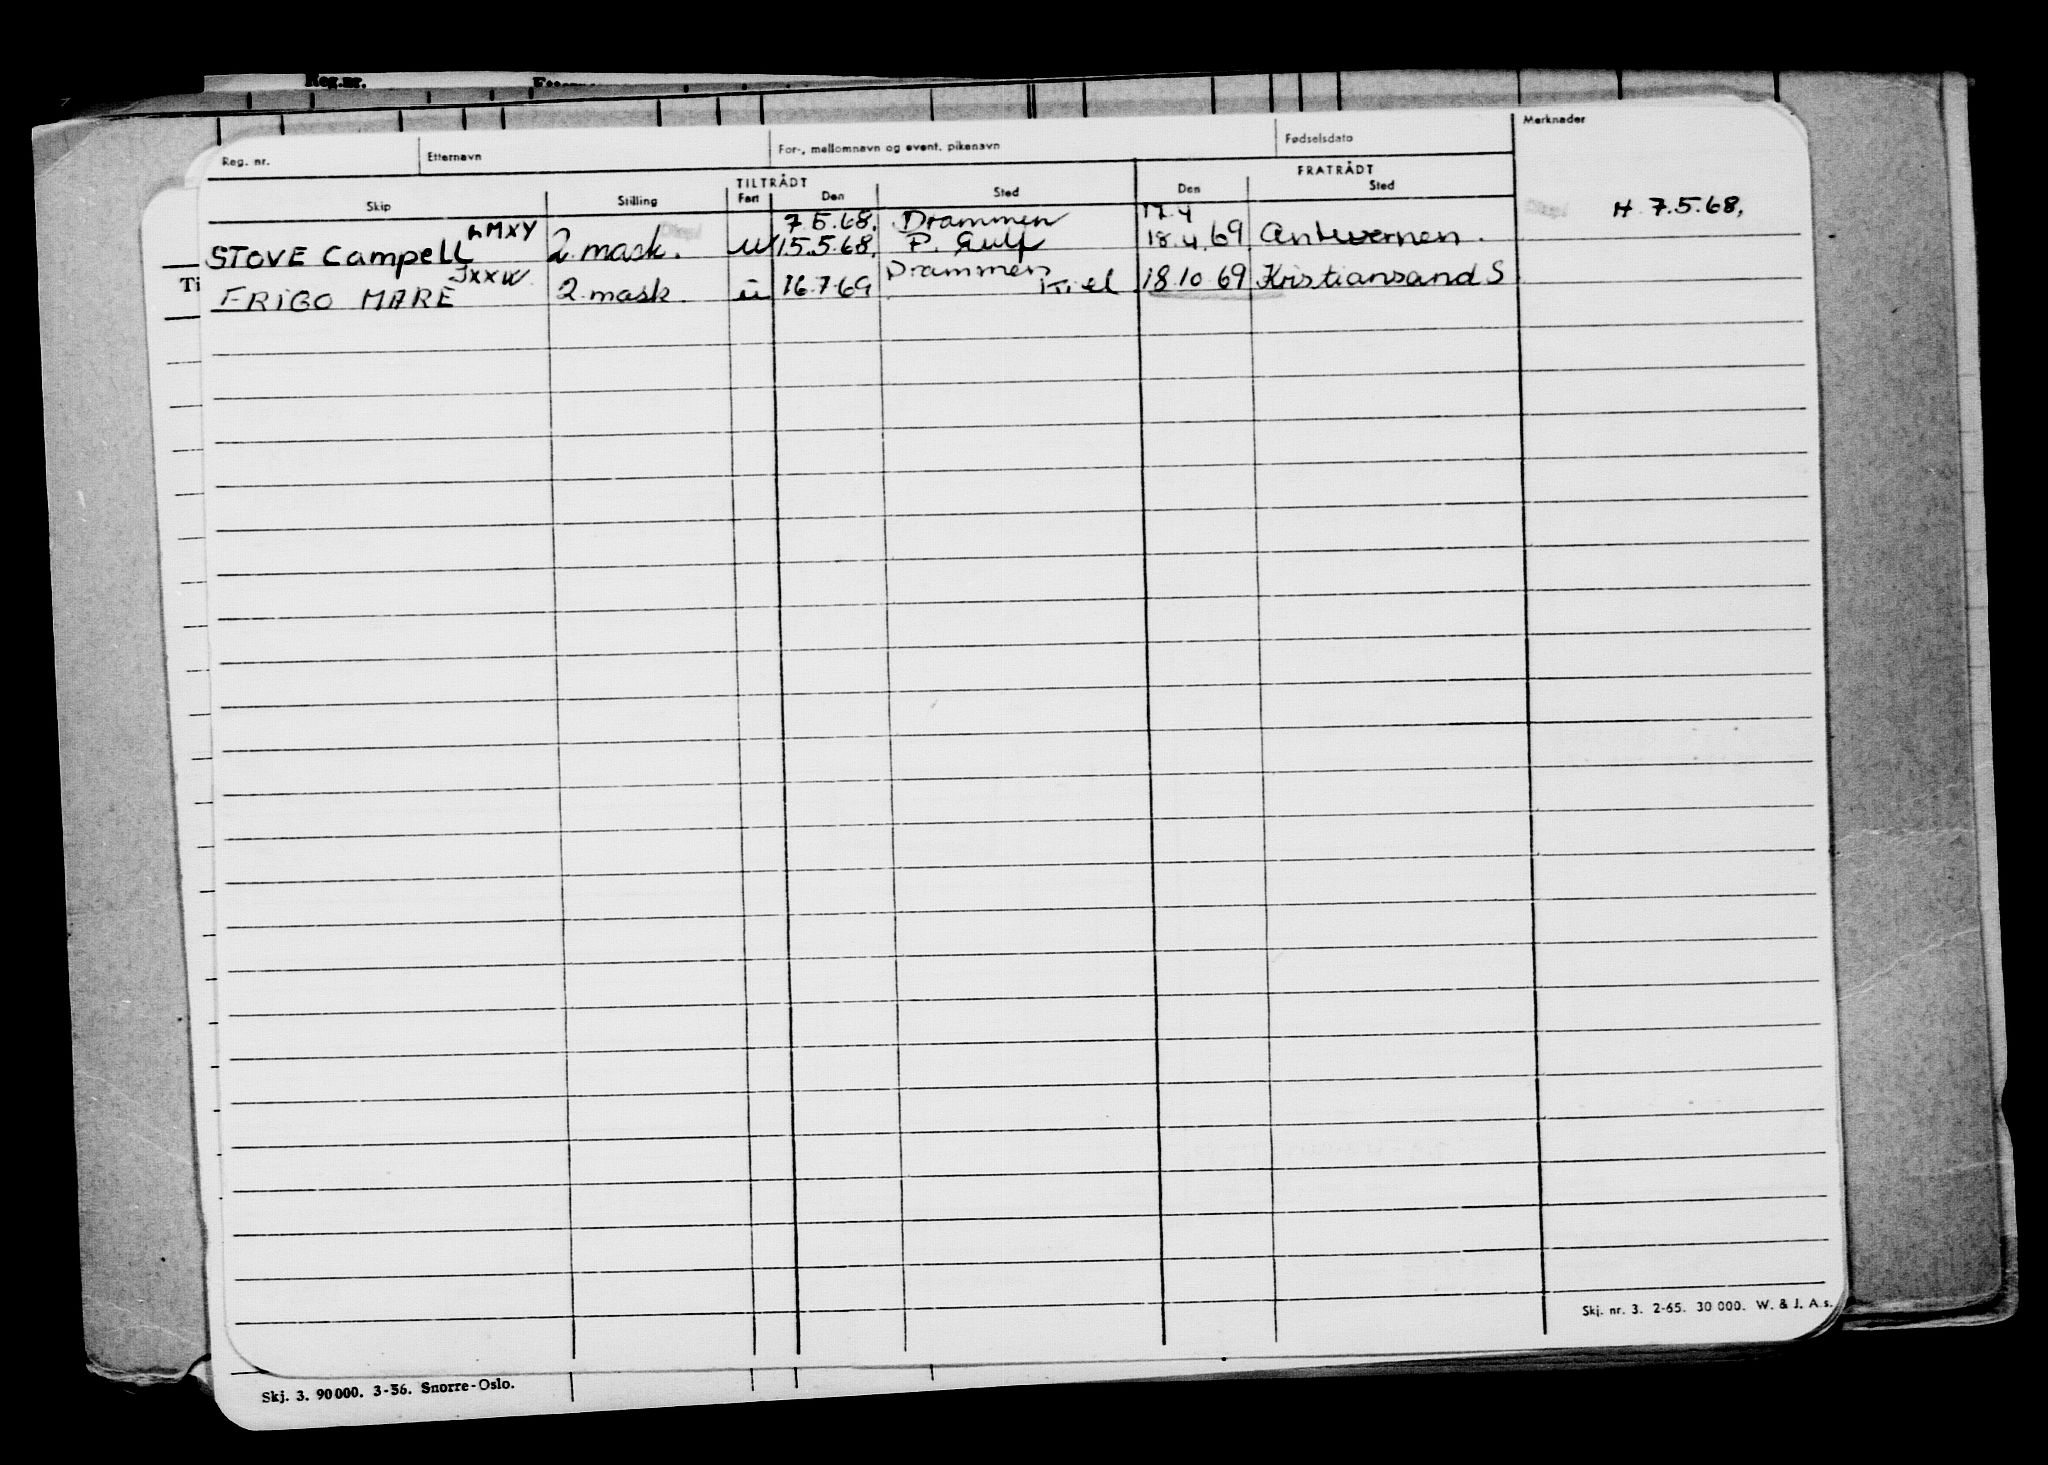 Reg.nr.
Reg. nr. Etternavn For-, mellomnavn og event. pikenavn Fødselsdato Merknader
TILTRÅDT FRATRÅDT
Skip Stilling Fart Den Sted Den Sted
7.5.68. Drammen 17.4 H 7.5.68.
STOVE Campell LMXY 2 mask. u 15.5.68. P. Gulf 18.4.69 Antwerpen.
FRIGO MARE JXXW 2 mask. u 16.7.69 Drammen Kiel 18.10 69 Kristiansand S
Ti
Skj. nr. 3. 2-65. 30 000. W. & J. A.s.
Skj. 3. 90000. 3-56. Snorre-Oslo.